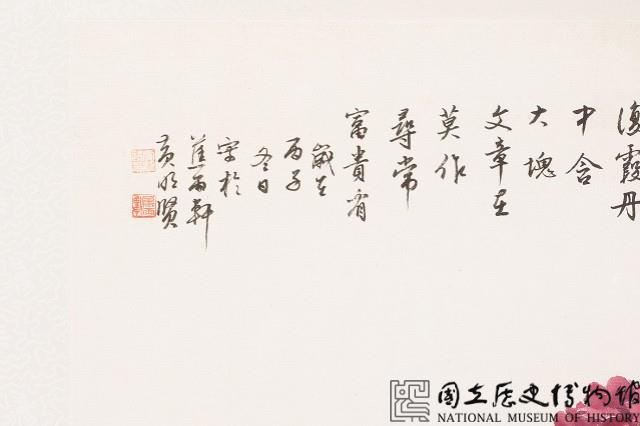 霞丹
中含
大塊
文章在
莫作
尋常
富貴看
歲在
丙子
冬日
寫於
蕉雨軒
黃明賢
國立歷史博物館
NATIONAL MUSEUM OF HISTORY